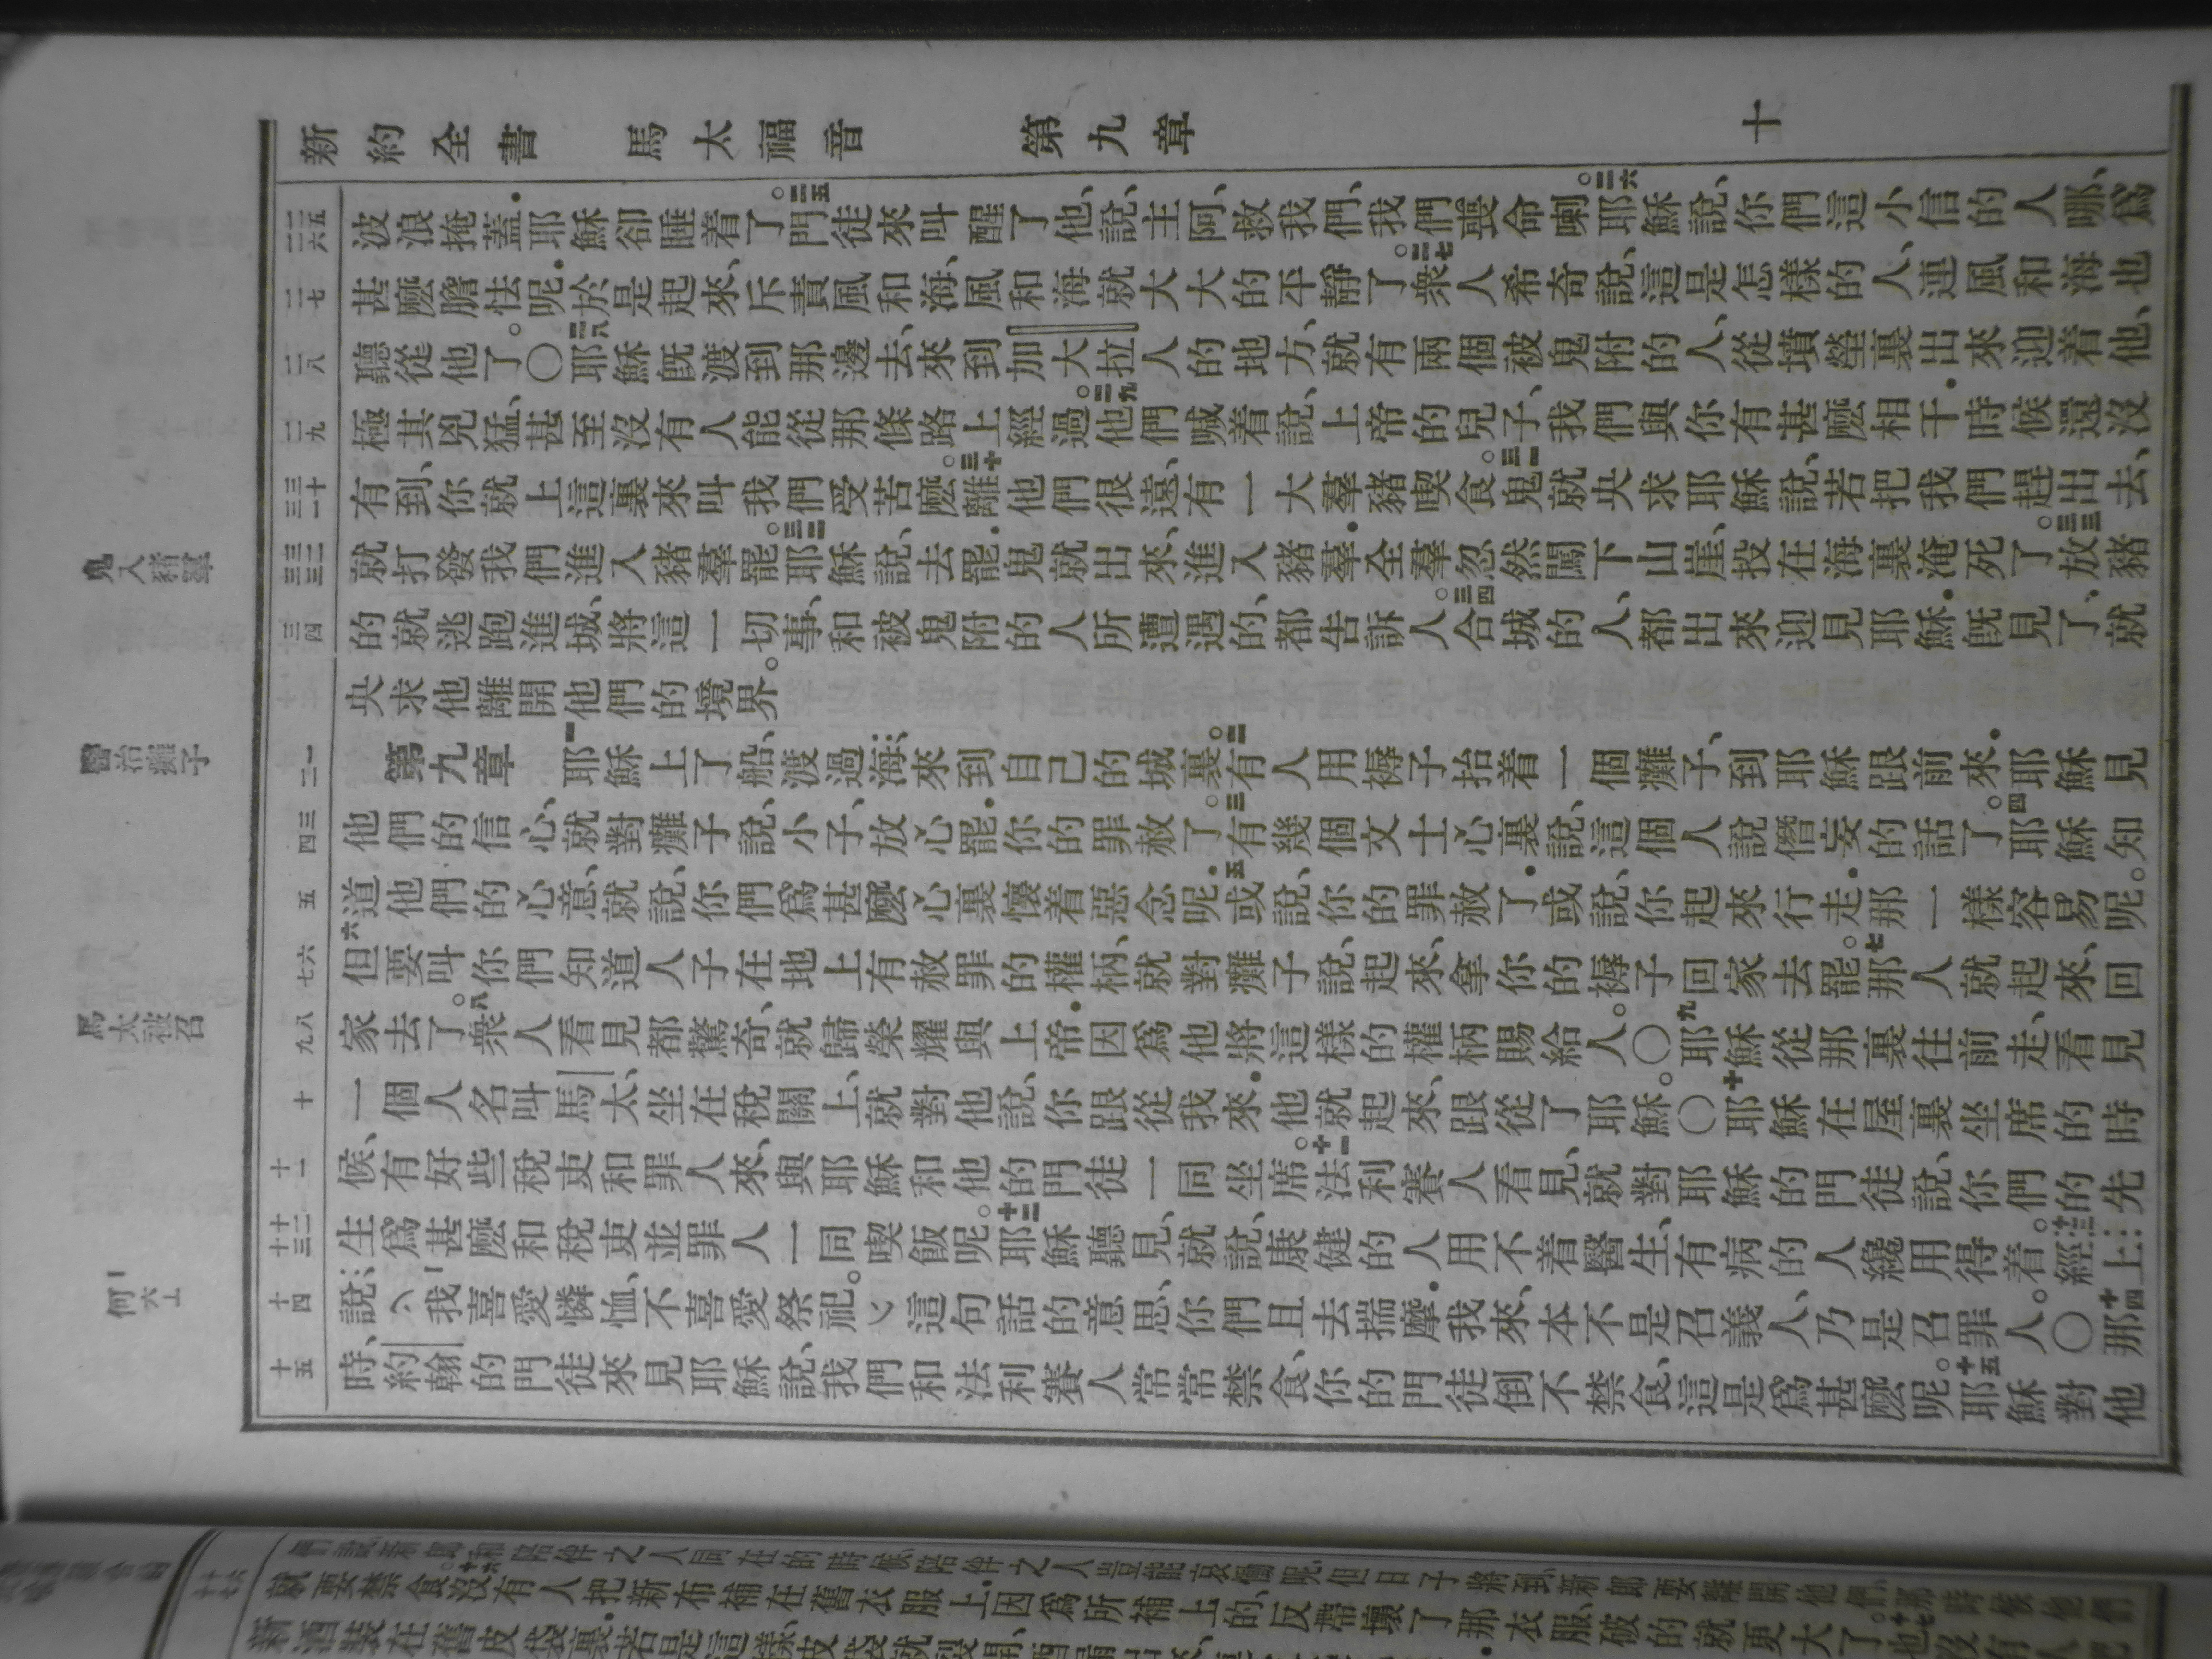 新約全書 馬太福音 第九章 十
波浪掩蓋．耶穌卻睡着了。二五門徒來叫醒了他、說、主阿、救我們、我們喪命喇。二六耶穌說、你們這小信的人哪、爲
甚麼膽怯呢．於是起來、斥責風和海、風和海就大大的平靜了。二七衆人希奇說、這是怎樣的人、連風和海也
聽從他了。〇二八耶穌旣渡到那邊去、來到加大拉人的地方、就有兩個被鬼附的人、從墳塋裏出來迎着他、
極其兇猛、甚至沒有人能從那條路上經過。二九他們喊着說、上帝的兒子、我們與你有甚麼相干．時候還沒
有到、你就上這裏來叫我們受苦麼。三十離他們很遠、有一大羣豬喫食。三一鬼就央求耶穌說、若把我們趕出去、
就打發我們進入豬羣罷。三二耶穌說、去罷．鬼就出來、進入豬羣．全羣忽然闖下山崖、投在海裏淹死了。三三放豬
的就逃跑進城、將這一切事、和被鬼附的人所遭遇的、都告訴人。三四合城的人、都出來迎見耶穌．旣見了、就
央求他離開他們的境界。
第九章 一耶穌上了船、渡過海、來到自己的城裏。二有人用褥子抬着一個癱子、到耶穌跟前來．耶穌見
他們的信心、就對癱子說、小子、放心罷．你的罪赦了。三有幾個文士心裏說、這個人說僭妄的話了。四耶穌知
道他們的心意、就說、你們爲甚麼心裏懷着惡念呢．五或說、你的罪赦了．或說、你起來行走．那一樣容易呢。
六但要叫你們知道人子在地上有赦罪的權柄、就對癱子說、起來、拿你的褥子回家去罷。七那人就起來、回
家去了。八衆人看見都驚奇、就歸榮耀與上帝．因爲他將這樣的權柄賜給人。〇九耶穌從那裏往前走、看見
一個人名叫馬太、坐在稅關上、就對他說、你跟從我來．他就起來、跟從了耶穌。〇十耶穌在屋裏坐席的時
候、有好些稅吏和罪人來、與耶穌和他的門徒一同坐席。十一法利賽人看見、就對耶穌的門徒說、你們的先
生爲甚麼和稅吏並罪人一同喫飯呢。十二耶穌聽見、就說、康健的人用不着醫生、有病的人纔用得着。十三經上
說、我喜愛憐恤、不喜愛祭祀。這句話的意思、你們且去揣摩．我來、本不是召義人、乃是召罪人。〇十四那
時、約翰的門徒來見耶穌說、我們和法利賽人常常禁食、你的門徒倒不禁食、這是爲甚麼呢。十五耶穌對他
二五 二六
二七
二八
二九
三十 三一
三二 三三
三四
一 二
三 四
五
六 七
八 九
十
十一
十二 十三
十四
十五
鬼入豬羣
醫治癱子
馬太被召
何六
就要禁食。沒有人把新布補在舊衣服上．因爲所補上的、反帶壞了那衣服、破的就更大了。十七也沒有人把